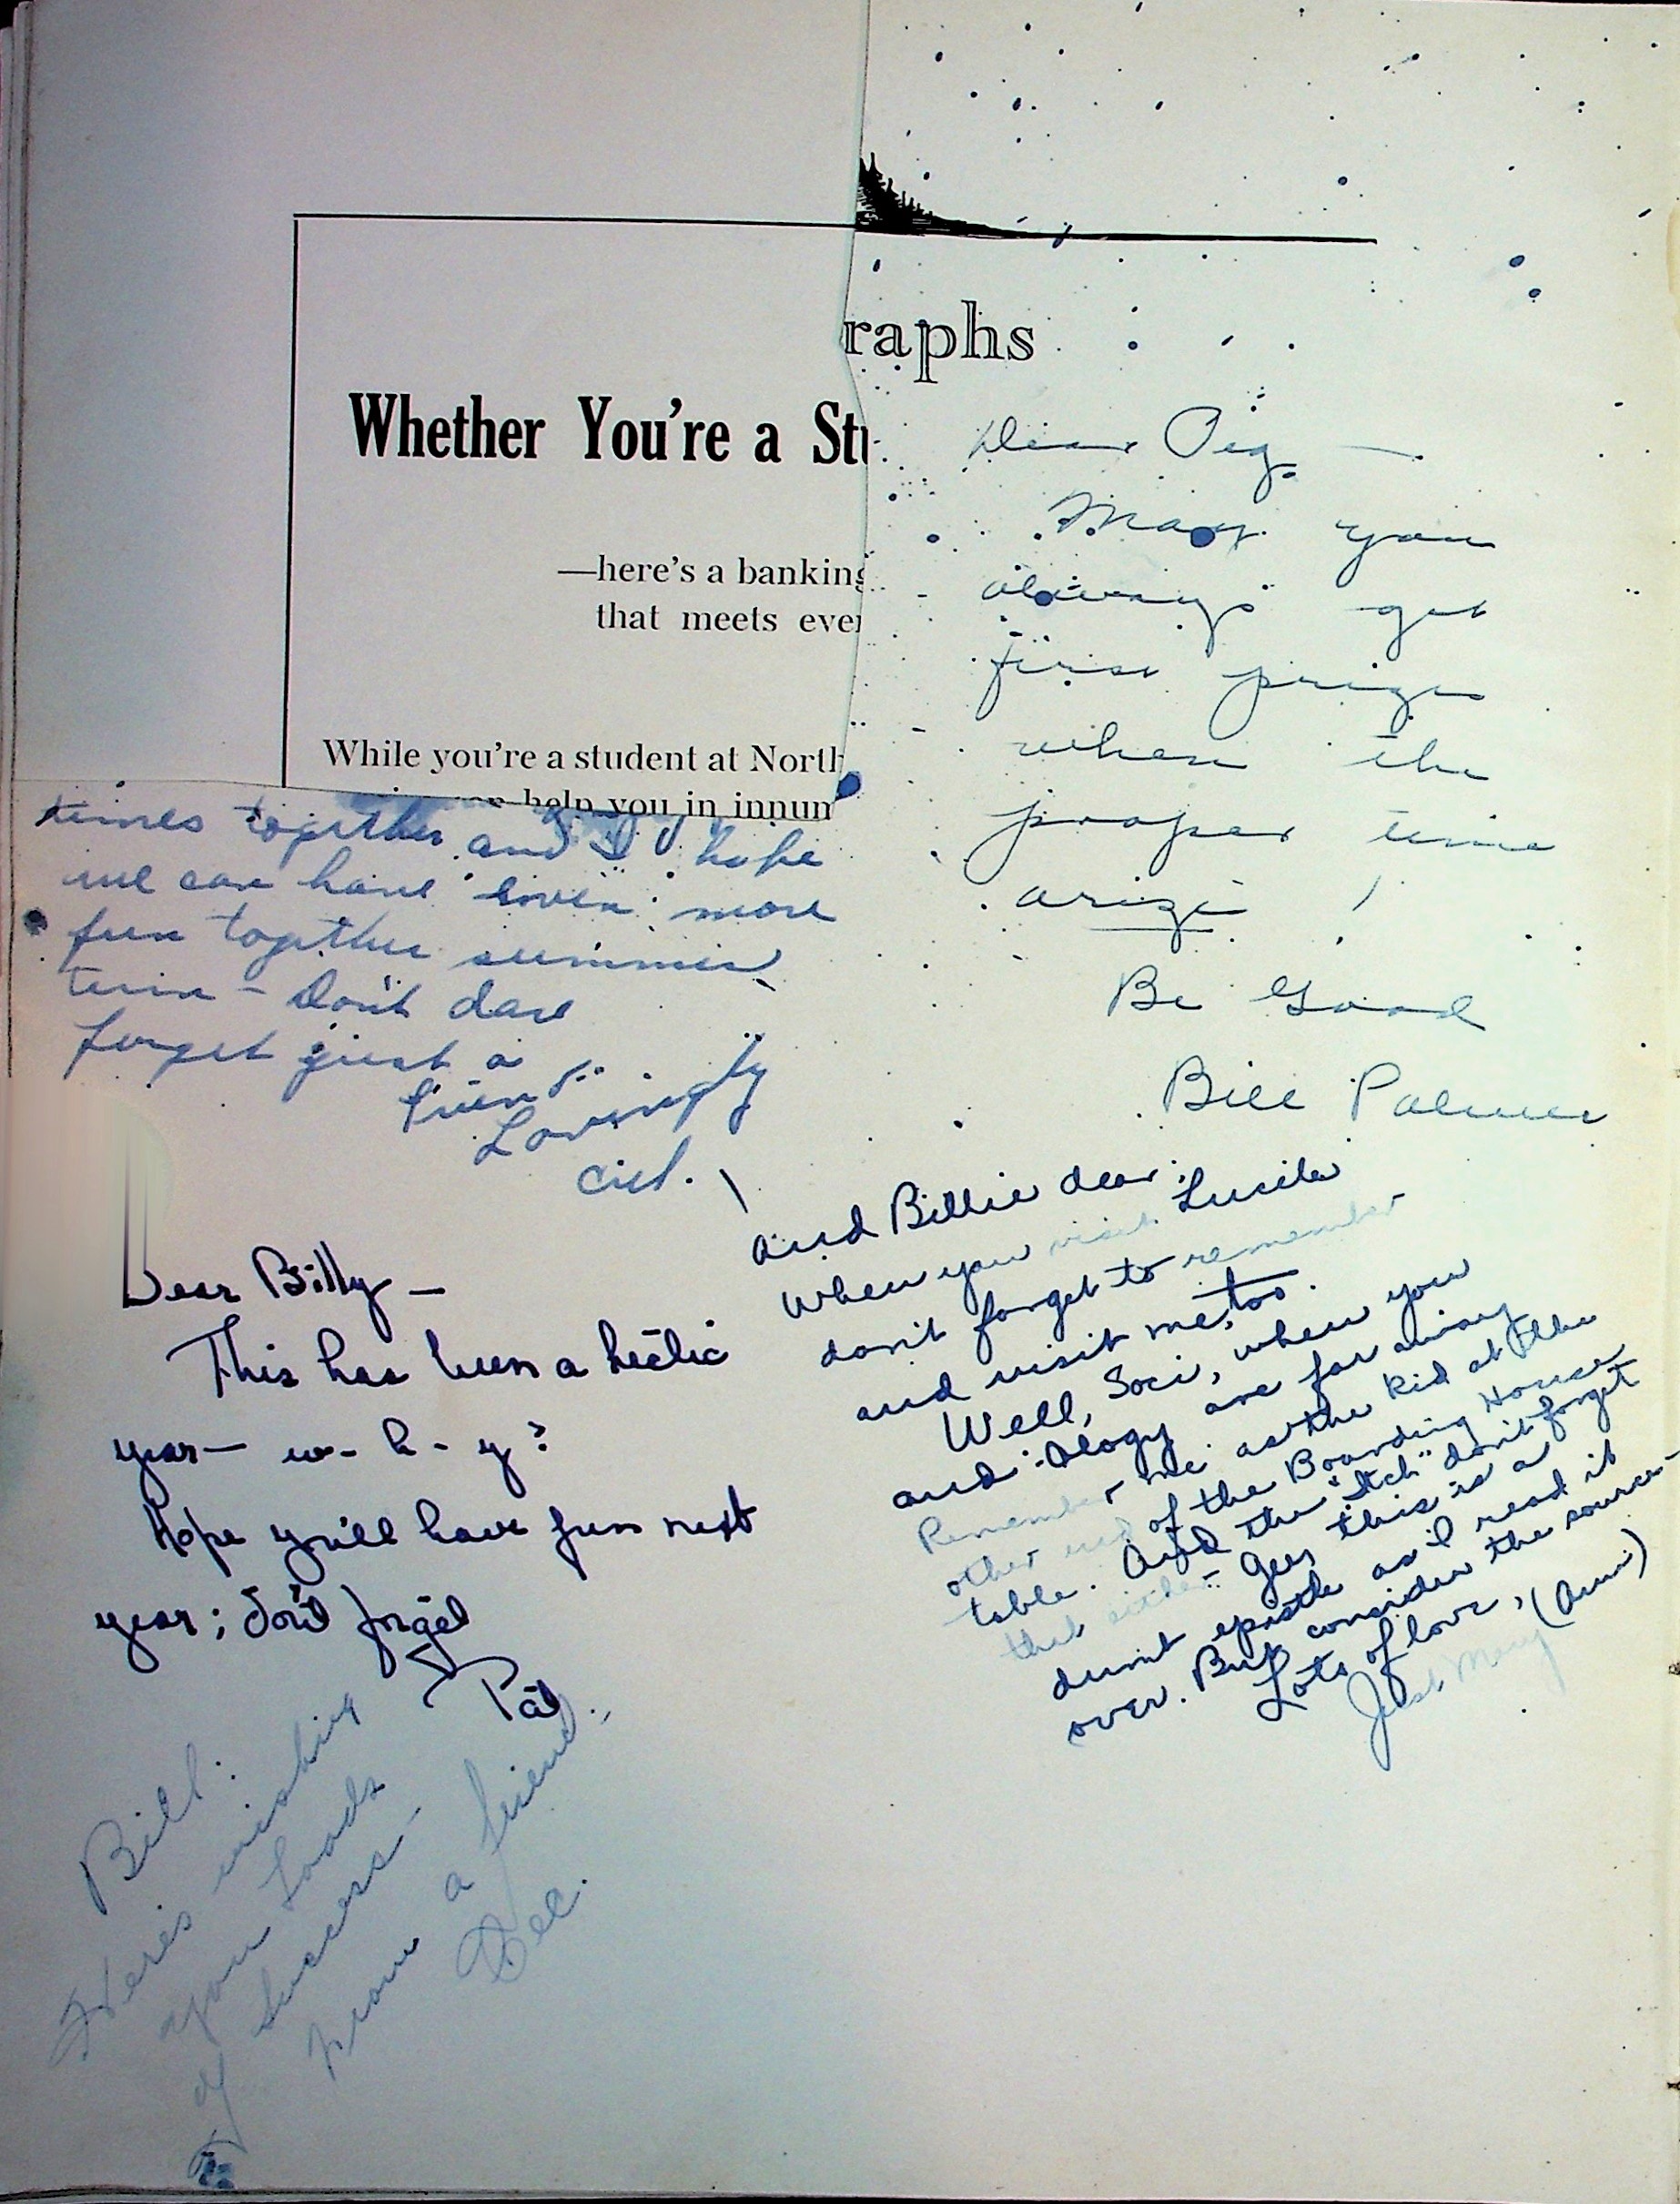 raphs
Whether You're a Stu
—here's a banking
that meets ever
While you're a student at North
help you in innum
Dear Peg —
May you
always get
first prize
when the
proper time
arize !
Be Good
Bill Palmer
times together and I hope
we can have even more
fun together summer
term - Don't dare
forget just a
friend
Lovingly
Dear Billy —
This has been a hectic
year — w - h - y ?
Hope you'll have fun next
year ; don't forget
Pat.
and Billie dear :
When you visit Lucile
don't forget to remember
and visit me, too.
Well, Soci, when you
and - Ology are far away
Remember me as the kid at the
other end of the Boarding House
table. And the "Itch" don't forget
that either - Gee, this is a
dumb epistle as I read it
over. But consider the source -
Lots of love,
Just Mary (Ann)
Bill :
Here's wishing
you loads
of success -
from a friend
Dee.